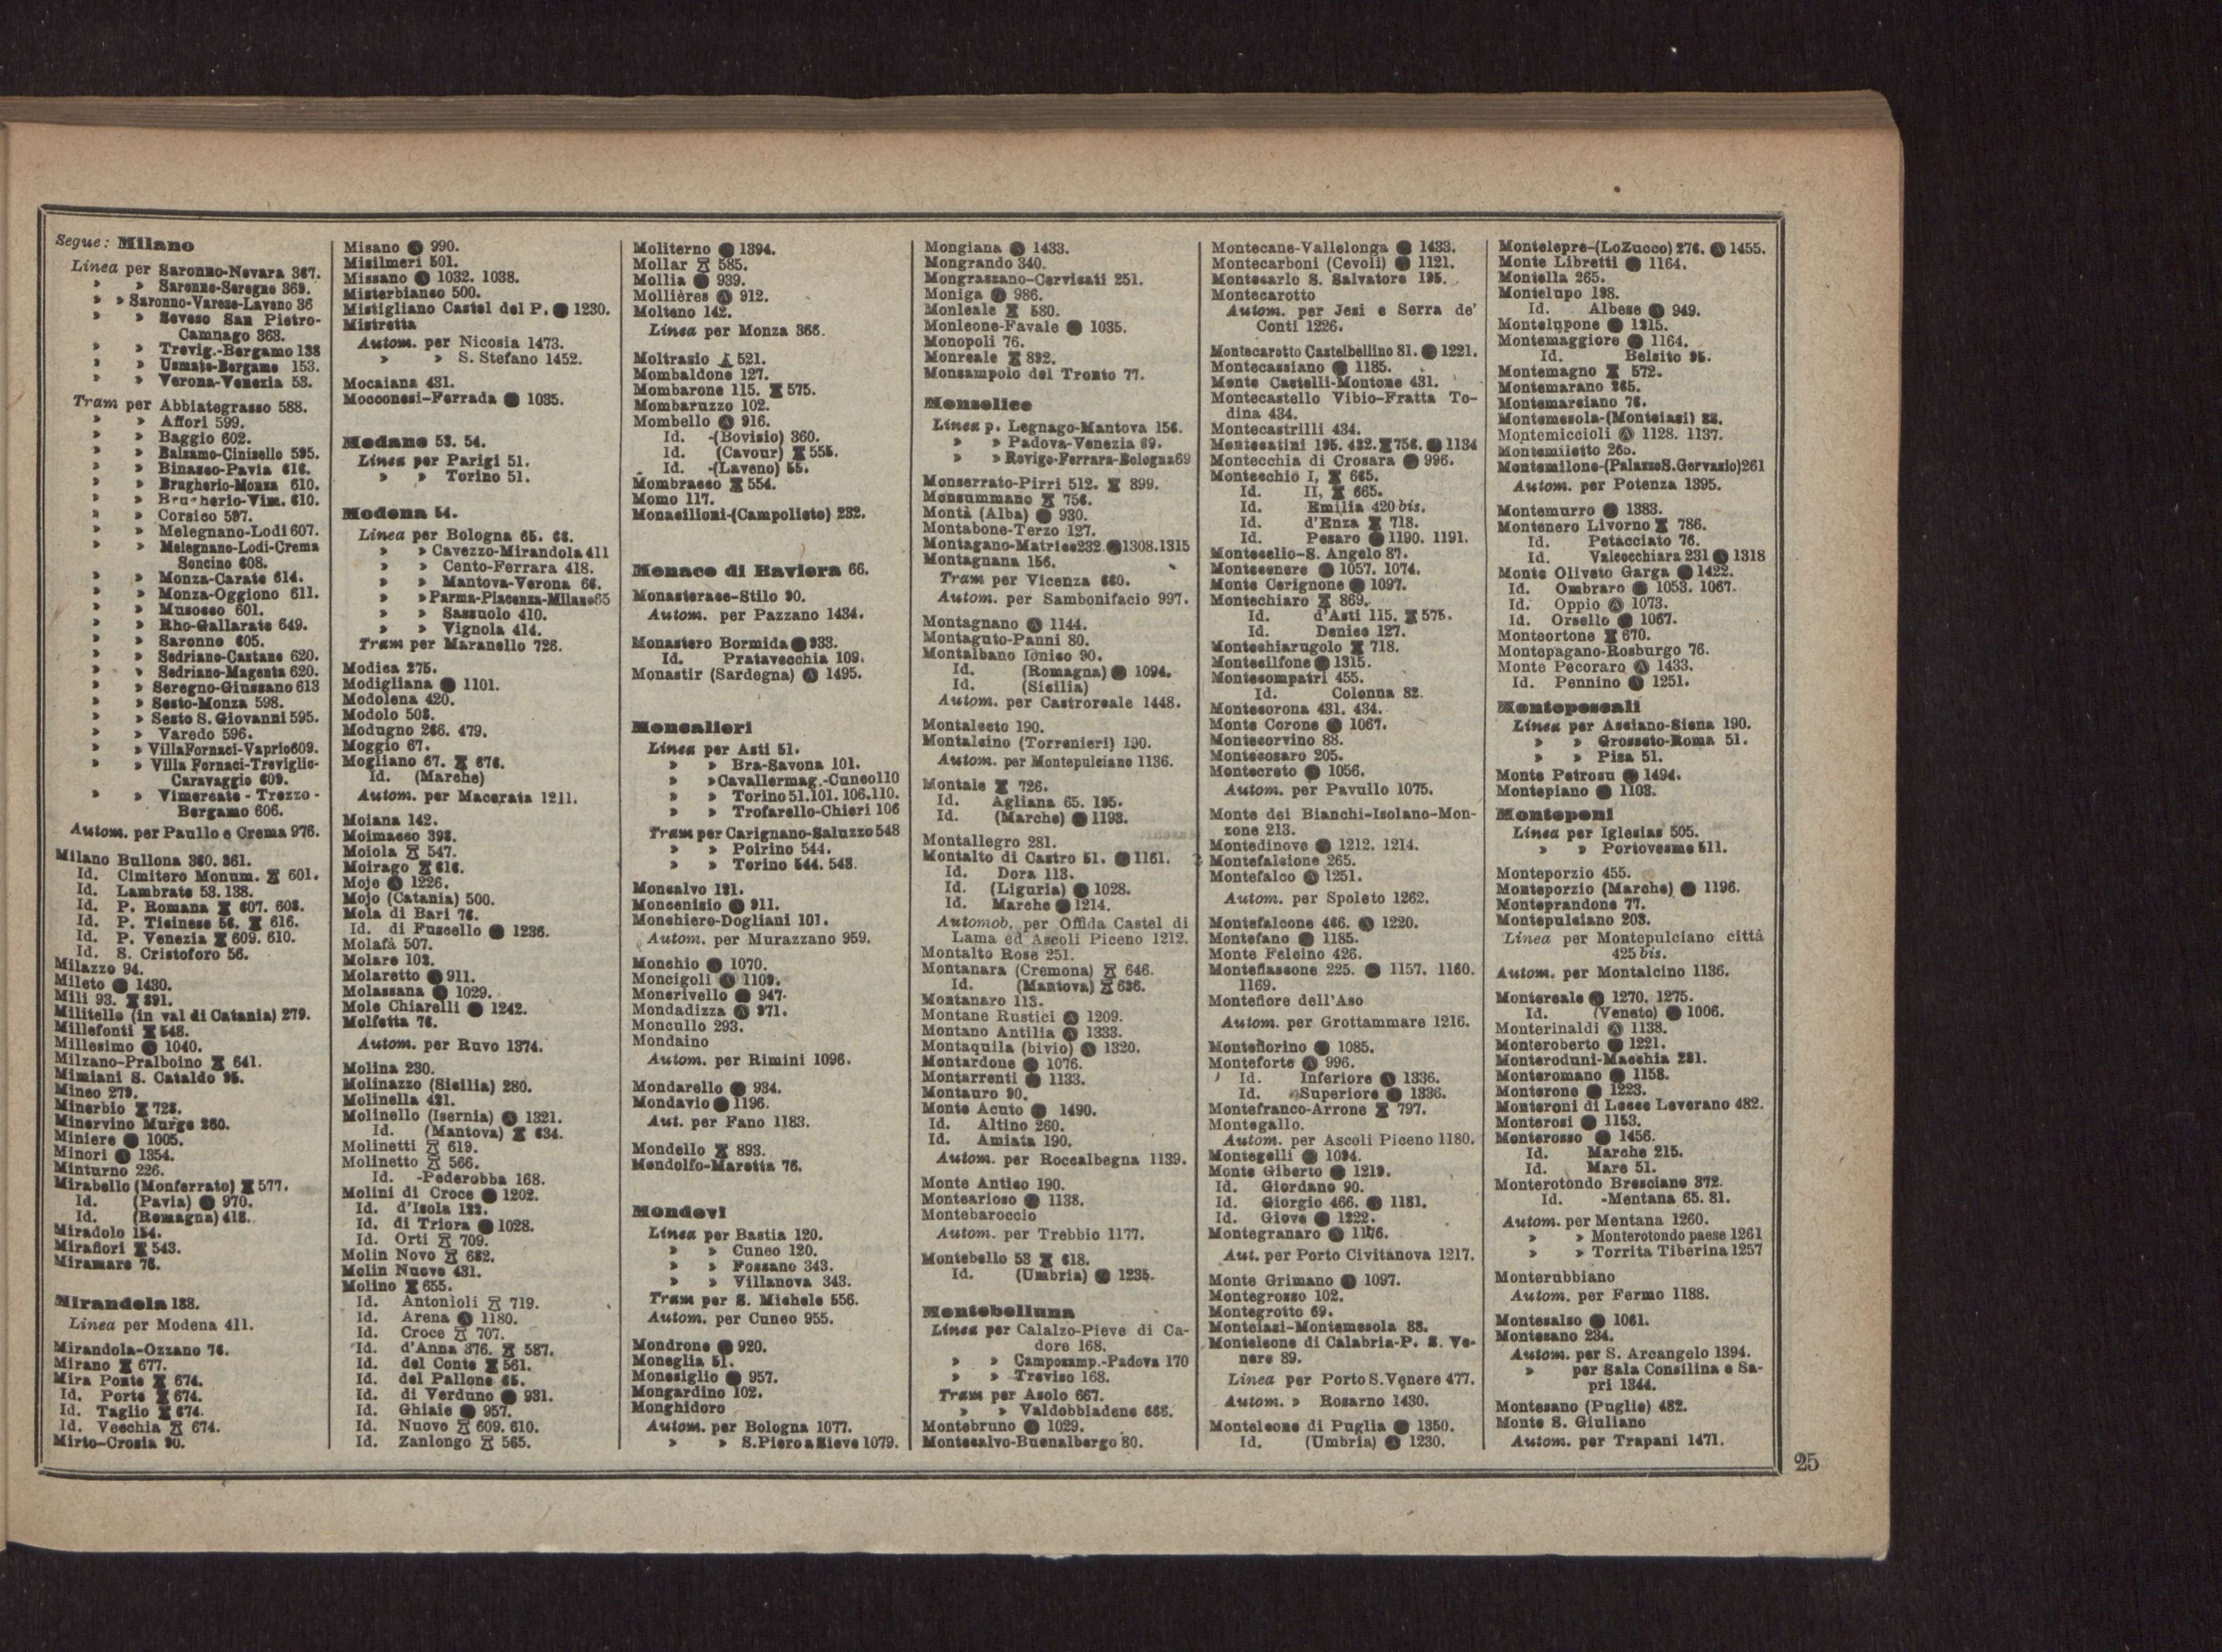 Segue: Milano
Linea per Saronno-Novara 367.
» » Saronno-Seregno 369.
» » Saronno-Varese-Laveno 36
» » Seveso San Pietro-
Camnago 363.
» » Trevig.-Bergamo 138
» » Usmate-Bergamo 153.
» » Verona-Venezia 53.
Tram per Abbiategrasso 588.
» » Affori 599.
» » Baggio 602.
» » Balsamo-Cinisello 595.
» » Binasco-Pavia 616.
» » Brugherio-Monza 610.
» » Brugherio-Vim. 610.
» » Corsico 597.
» » Melegnano-Lodi 607.
» » Melegnano-Lodi-Crema
Soncino 608.
» » Monza-Carate 614.
» » Monza-Oggiono 611.
» » Musocco 601.
» » Rho-Gallarate 649.
» » Saronno 605.
» » Sedriano-Castano 620.
» » Sedriano-Magenta 620.
» » Seregno-Giussano 613
» » Sesto-Monza 598.
» » Sesto S. Giovanni 595.
» » Varedo 596.
» » Villa Fornaci-Vaprio 609.
» » Villa Fornaci-Treviglio-
Caravaggio 609.
» » Vimercate - Trezzo -
Bergamo 606.
Autom. per Paullo e Crema 976.
Milano Bullona 360. 361.
Id. Cimitero Monum. 601.
Id. Lambrate 53. 138.
Id. P. Romana 607. 608.
Id. P. Ticinese 56. 616.
Id. P. Venezia 609. 610.
Id. S. Cristoforo 56.
Milazzo 94.
Mileto ● 1430.
Mili 93. 891.
Militello (in val di Catania) 279.
Millefonti 548.
Millesimo Ⓐ 1040.
Milzano-Pralboino 641.
Mimiani S. Cataldo 95.
Mineo 279.
Minerbio 728.
Minervino Murge 260.
Miniere ● 1005.
Minori Ⓐ 1354.
Minturno 226.
Mirabello (Monferrato) 577.
Id. (Pavia) ● 970.
Id. (Romagna) 418.
Miradolo 154.
Mirafiori 543.
Miramare 76.
Mirandola 138.
Linea per Modena 411.
Mirandola-Ozzano 76.
Mirano 677.
Mira Ponte 674.
Id. Porte 674.
Id. Taglio 674.
Id. Vecchia 674.
Mirto-Crosia 90.
Misano ● 990.
Misilmeri 501.
Missano Ⓐ 1032. 1038.
Misterbianco 500.
Mistigliano Castel del P. ● 1230.
Mistretta
Autom. per Nicosia 1473.
» » S. Stefano 1452.
Mocaiana 431.
Mocconesi-Ferrada ● 1035.
Modane 53. 54.
Linea per Parigi 51.
» » Torino 51.
Modena 54.
Linea per Bologna 65. 66.
» » Cavezzo-Mirandola 411
» » Cento-Ferrara 418.
» » Mantova-Verona 66.
» » Parma-Piacenza-Milano 65
» » Sassuolo 410.
» » Vignola 414.
Tram per Maranello 726.
Modica 275.
Modigliana ● 1101.
Modolena 420.
Modolo 503.
Modugno 266. 479.
Moggio 67.
Mogliano 67. 676.
Id. (Marche)
Autom. per Macerata 1211.
Moiana 142.
Moimacco 398.
Moiola 547.
Moirago 616.
Moje Ⓐ 1226.
Mojo (Catania) 500.
Mola di Bari 76.
Id. di Fuscello ● 1236.
Molafà 507.
Molare 103.
Molaretto ● 911.
Molassana ● 1029.
Mole Chiarelli ● 1242.
Molfetta 76.
Autom. per Ruvo 1374.
Molina 230.
Molinazzo (Sicilia) 280.
Molinella 421.
Molinello (Isernia) Ⓐ 1321.
Id. (Mantova) 634.
Molinetti 619.
Molinetto 566.
Id. -Pederobba 168.
Molini di Croce ● 1202.
Id. d'Isola 122.
Id. di Triora ● 1028.
Id. Orti 709.
Molin Novo 682.
Molin Nuovo 431.
Molino 655.
Id. Antonioli 719.
Id. Arena Ⓐ 1180.
Id. Croce 707.
Id. d'Anna 376. 587.
Id. del Conte 561.
Id. del Pallone 65.
Id. di Verduno ● 931.
Id. Ghiaie ● 957.
Id. Nuovo 609. 610.
Id. Zanlongo 565.
Moliterno ● 1394.
Mollar 585.
Mollia ● 939.
Mollières Ⓐ 912.
Molteno 142.
Linea per Monza 366.
Moltrasio 521.
Mombaldone 127.
Mombarone 115. 575.
Mombaruzzo 102.
Mombello Ⓐ 916.
Id. -(Bovisio) 360.
Id. (Cavour) 555.
Id. -(Laveno) 55.
Mombracco 554.
Momo 117.
Monacilioni-(Campolieto) 232.
Monaco di Baviera 66.
Monasterace-Stilo 90.
Autom. per Pazzano 1434.
Monastero Bormida ● 933.
Id. Pratavecchia 109.
Monastir (Sardegna) Ⓐ 1495.
Moncalieri
Linea per Asti 51.
» » Bra-Savona 101.
» » Cavallermag.-Cuneo 110
» » Torino 51. 101. 106. 110.
» » Trofarello-Chieri 106
Tram per Carignano-Saluzzo 548
» » Poirino 544.
» » Torino 544. 548.
Moncalvo 121.
Moncenisio ● 911.
Monchiero-Dogliani 101.
Autom. per Murazzano 959.
Monchio ● 1070.
Moncigoli Ⓐ 1109.
Moncrivello ● 947.
Mondadizza Ⓐ 971.
Moncullo 293.
Mondaino
Autom. per Rimini 1096.
Mondarello ● 934.
Mondavio ● 1196.
Aut. per Fano 1183.
Mondello 893.
Mondolfo-Marotta 76.
Mondovì
Linea per Bastia 120.
» » Cuneo 120.
» » Fossano 343.
» » Villanova 343.
Tram per S. Michele 556.
Autom. per Cuneo 955.
Mondrone ● 920.
Moneglia 51.
Monesiglio ● 957.
Mongardino 102.
Monghidoro
Autom. per Bologna 1077.
» » S. Piero a Sieve 1079.
Mongiana Ⓐ 1433.
Mongrando 340.
Mongrassano-Cervicati 251.
Moniga Ⓐ 986.
Monleale 580.
Monleone-Favale ● 1035.
Monopoli 76.
Monreale 892.
Monsampolo del Tronto 77.
Monselice
Linea p. Legnago-Mantova 156.
» » Padova-Venezia 69.
» » Rovigo-Ferrara-Bologna 69
Monserrato-Pirri 512. 899.
Monsummano 756.
Montà (Alba) ● 930.
Montabone-Terzo 127.
Montagano-Matrice 232 ● 1308. 1315
Montagnana 156.
Tram per Vicenza 660.
Autom. per Sambonifacio 997.
Montagnano Ⓐ 1144.
Montaguto-Panni 80.
Montalbano Ionico 90.
Id. (Romagna) ● 1094.
Id. (Sicilia)
Autom. per Castroreale 1448.
Montalceto 190.
Montalcino (Torrenieri) 190.
Autom. per Montepulciano 1136.
Montale 726.
Id. Agliana 65. 195.
Id. (Marche) ● 1193.
Montallegro 281.
Montalto di Castro 51. ● 1161.
Id. Dora 113.
Id. (Liguria) ● 1028.
Id. Marche ● 1214.
Automob. per Offida Castel di
Lama ed Ascoli Piceno 1212.
Montalto Rose 251.
Montanara (Cremona) 646.
Id. (Mantova) 636.
Montanaro 113.
Montane Rustici Ⓐ 1209.
Montano Antilia Ⓐ 1333.
Montaquila (bivio) Ⓐ 1320.
Montardone ● 1076.
Montarrenti ● 1133.
Montauro 90.
Monte Acuto ● 1490.
Id. Altino 260.
Id. Amiata 190.
Autom. per Roccalbegna 1139.
Monte Antico 190.
Montearioso ● 1138.
Montebaroccio
Autom. per Trebbio 1177.
Montebello 53 618.
Id. (Umbria) ● 1235.
Montebelluna
Linea per Calalzo-Pieve di Ca-
dore 168.
» » Camposamp.-Padova 170
» » Treviso 168.
Tram per Asolo 667.
» » Valdobbiadene 668.
Montebruno ● 1029.
Montecalvo-Buonalbergo 80.
Montecane-Vallelonga ● 1433.
Montecarboni (Cevoli) ● 1121.
Montecarlo S. Salvatore 195.
Montecarotto
Autom. per Jesi e Serra de'
Conti 1226.
Montecarotto Castelbellino 81. ● 1221.
Montecassiano ● 1185.
Monte Castelli-Montone 431.
Montecastello Vibio-Fratta To-
dina 434.
Montecastrilli 434.
Montecatini 195. 432. 756. ● 1134
Montecchia di Crosara ● 996.
Montecchio I, 665.
Id. II, 665.
Id. Emilia 420 bis.
Id. d'Enza 718.
Id. Pesaro ● 1190. 1191.
Montecelio-S. Angelo 87.
Montecenere ● 1057. 1074.
Monte Cerignone ● 1097.
Montechiaro 869.
Id. d'Asti 115. 575.
Id. Denice 127.
Montechiarugolo 718.
Montecilfone ● 1315.
Montecompatri 455.
Id. Colonna 82.
Montecorona 431. 434.
Monte Corone ● 1067.
Montecorvino 88.
Montecosaro 205.
Montecreto ● 1056.
Autom. per Pavullo 1075.
Monte dei Bianchi-Isolano-Mon-
zone 213.
Montedinove ● 1212. 1214.
Montefalcione 265.
Montefalco Ⓐ 1251.
Autom. per Spoleto 1262.
Montefalcone 466. Ⓐ 1220.
Montefano ● 1185.
Monte Felcino 426.
Montefiascone 225. ● 1157. 1160.
1169.
Montefiore dell'Aso
Autom. per Grottammare 1216.
Montefiorino ● 1085.
Monteforte Ⓐ 996.
Id. Inferiore Ⓐ 1336.
Id. Superiore ● 1336.
Montefranco-Arrone 797.
Montegallo.
Autom. per Ascoli Piceno 1180.
Montegelli ● 1094.
Monte Giberto ● 1219.
Id. Giordano 90.
Id. Giorgio 466. ● 1181.
Id. Giove ● 1222.
Montegranaro Ⓐ 1176.
Aut. per Porto Civitanova 1217.
Monte Grimano ● 1097.
Montegrosso 102.
Montegrotto 69.
Monteiasi-Montemesola 88.
Monteleone di Calabria-P. S. Ve-
nere 89.
Linea per Porto S. Venere 477.
Autom. » Rosarno 1430.
Monteleone di Puglia ● 1350.
Id. (Umbria) Ⓐ 1230.
Montelepre-(Lo Zucco) 276. Ⓐ 1455.
Monte Libretti ● 1164.
Montella 265.
Montelupo 198.
Id. Albese Ⓐ 949.
Montelupone ● 1215.
Montemaggiore ● 1164.
Id. Belsito 95.
Montemagno 572.
Montemarano 265.
Montemarciano 76.
Montemesola-(Monteiasi) 88.
Montemiccioli Ⓐ 1128. 1137.
Montemiletto 265.
Montemilone-(Palazzo S. Gervasio) 261
Autom. per Potenza 1395.
Montemurro ● 1383.
Montenero Livorno 786.
Id. Petacciato 76.
Id. Valcocchiara 231 Ⓐ 1318
Monte Oliveto Garga ● 1422.
Id. Ombraro ● 1053. 1067.
Id. Oppio Ⓐ 1073.
Id. Orsello ● 1067.
Monteortone 670.
Montepagano-Rosburgo 76.
Monte Pecoraro Ⓐ 1433.
Id. Pennino Ⓐ 1251.
Montepescali
Linea per Asciano-Siena 190.
» » Grosseto-Roma 51.
» » Pisa 51.
Monte Petrosu ● 1494.
Montepiano ● 1103.
Monteponi
Linea per Iglesias 505.
» » Portovesme 511.
Monteporzio 455.
Monteporzio (Marche) ● 1196.
Monteprandone 77.
Montepulciano 203.
Linea per Montepulciano città
425 bis.
Autom. per Montalcino 1136.
Montereale Ⓐ 1270. 1275.
Id. (Veneto) ● 1006.
Monterinaldi Ⓐ 1138.
Monteroberto ● 1221.
Monteroduni-Macchia 231.
Monteromano ● 1158.
Monterone ● 1223.
Monteroni di Lecce Leverano 482.
Monterosi ● 1153.
Monterosso ● 1456.
Id. Marche 215.
Id. Mare 51.
Monterotondo Bresciano 372.
Id. -Mentana 65. 81.
Autom. per Mentana 1260.
» » Monterotondo paese 1261
» » Torrita Tiberina 1257
Monterubbiano
Autom. per Fermo 1188.
Montesalso ● 1061.
Montesano 234.
Autom. per S. Arcangelo 1394.
» per Sala Consilina e Sa-
pri 1344.
Montesano (Puglie) 482.
Monte S. Giuliano
Autom. per Trapani 1471.
25